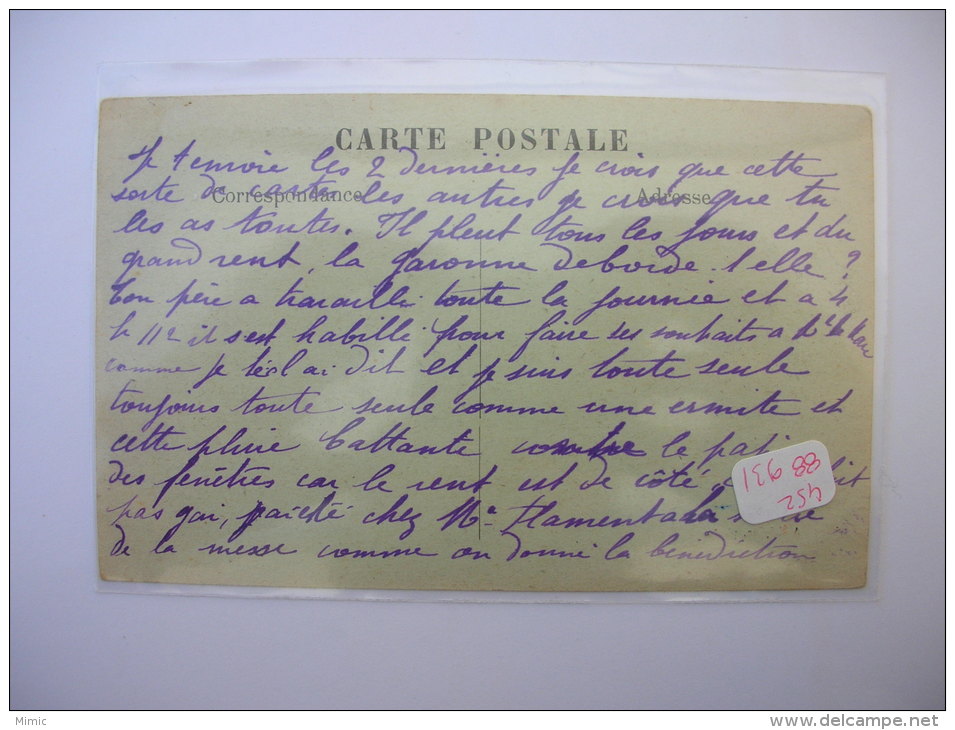 CARTE POSTALE
Je t envoie les 2 dernières je crois que cette
sorte de cartes les autres je crois que tu
Correspondance
Adresse
les as toutes. Il pleut tous les jours et du
grand vent, la Garonne deborde t elle ?
ton père a travaillé toute la journée et a 4
h 1/2 il s est habillé pour faire ses souhaits a
comme je te l ai dit et je suis toute seule
toujours toute seule comme une ermite et
cette pluie battante contre le
des fenêtres car le vent est de côté
pas gai, chez Me Flament a la
de la messe comme on donne la bénédiction
452
88 931
Mimic
http://www.delcampe.net